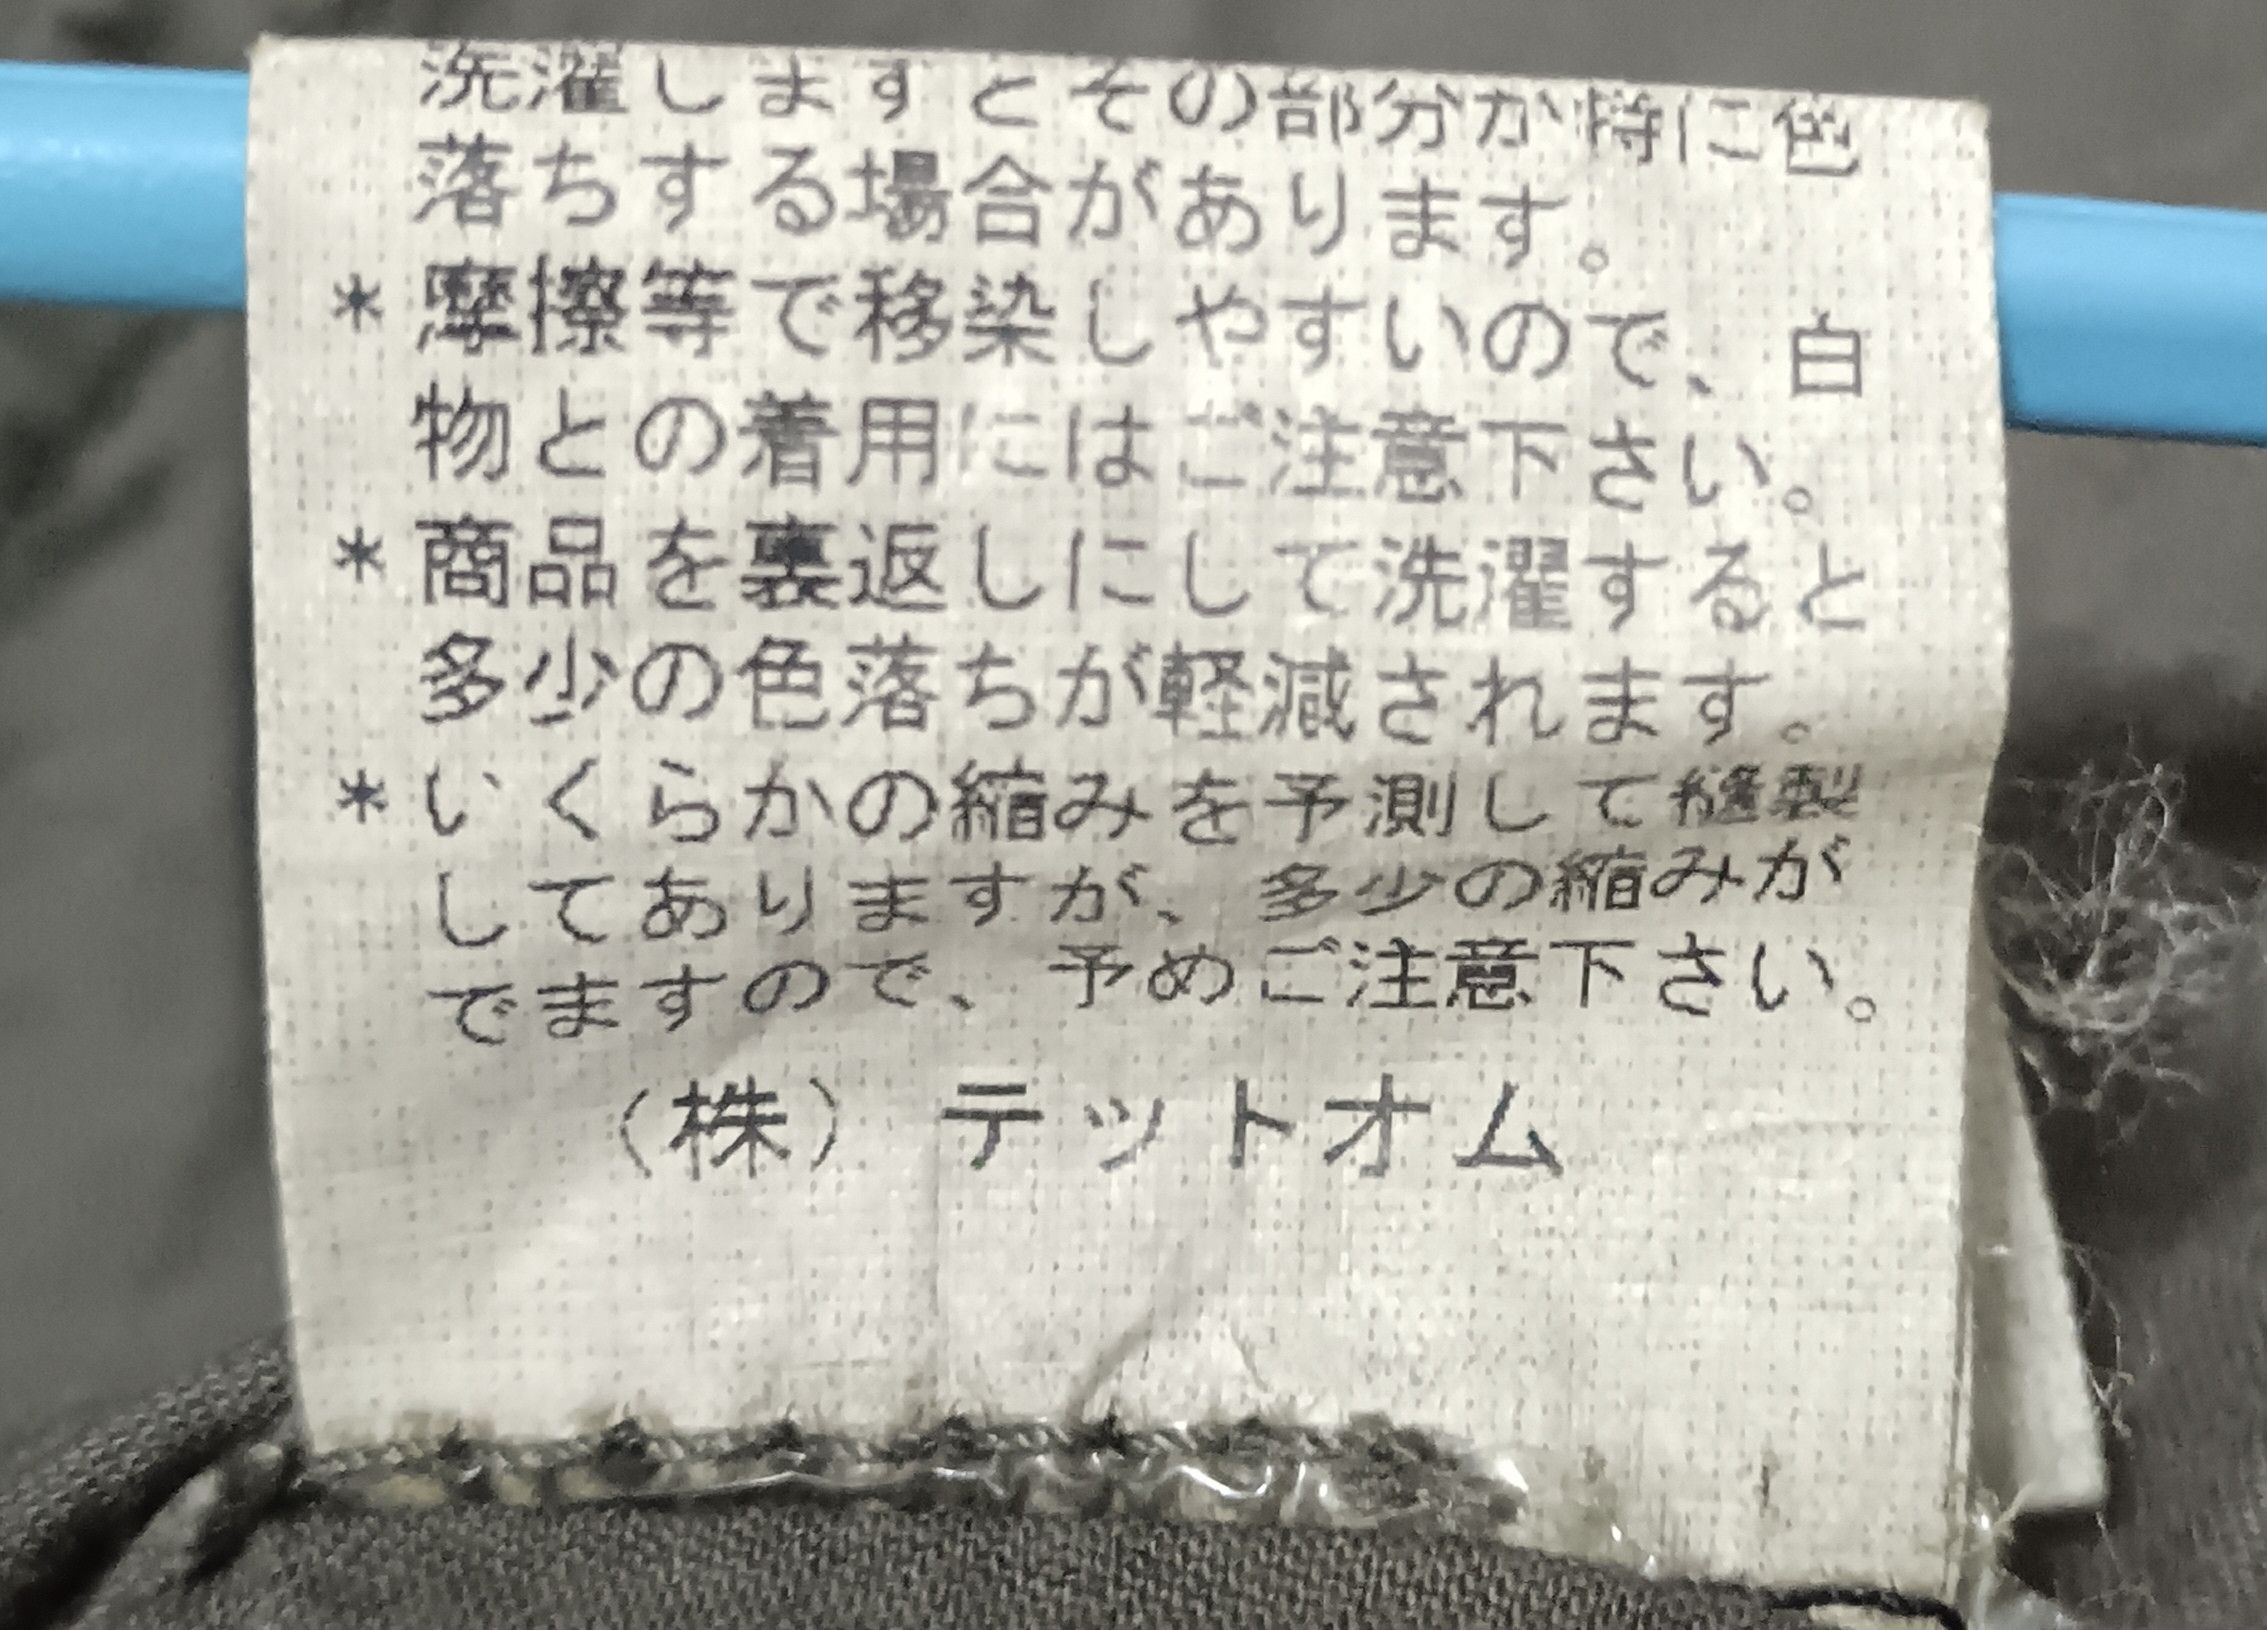 洗濯しますとその部分が特に色
落ちする場合があります。
*摩擦等で移染しやすいので、白
物との着用にはご注意下さい。
*商品を裏返しにして洗濯すると
多少の色落ちが軽減されます。
*いくらかの縮みを予測して縫製
してありますが、多少の縮みが
でますので、予めご注意下さい。
(株)テットオム